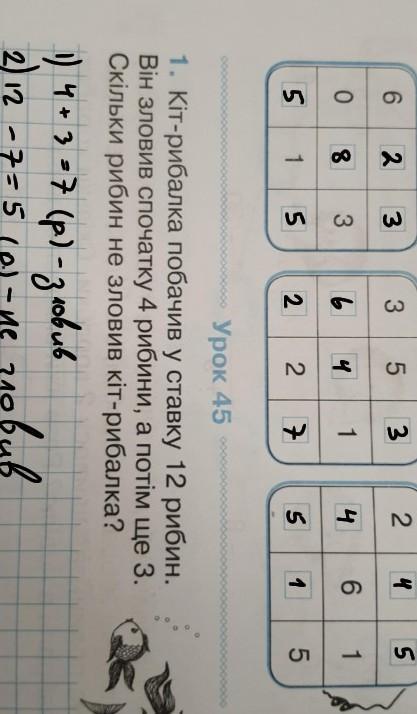 6 2 3 3 5 3 2 4 5
0 8 3 6 4 1 4 6 1
5 1 5 2 2 7 5 1 5
Урок 45
1. Кіт-рибалка побачив у ставку 12 рибин.
Він зловив спочатку 4 рибини, а потім ще 3.
Скільки рибин не зловив кіт-рибалка?
1) 4 + 3 = 7 (р) - зловив
2) 12 - 7 = 5 (р) - не зловив